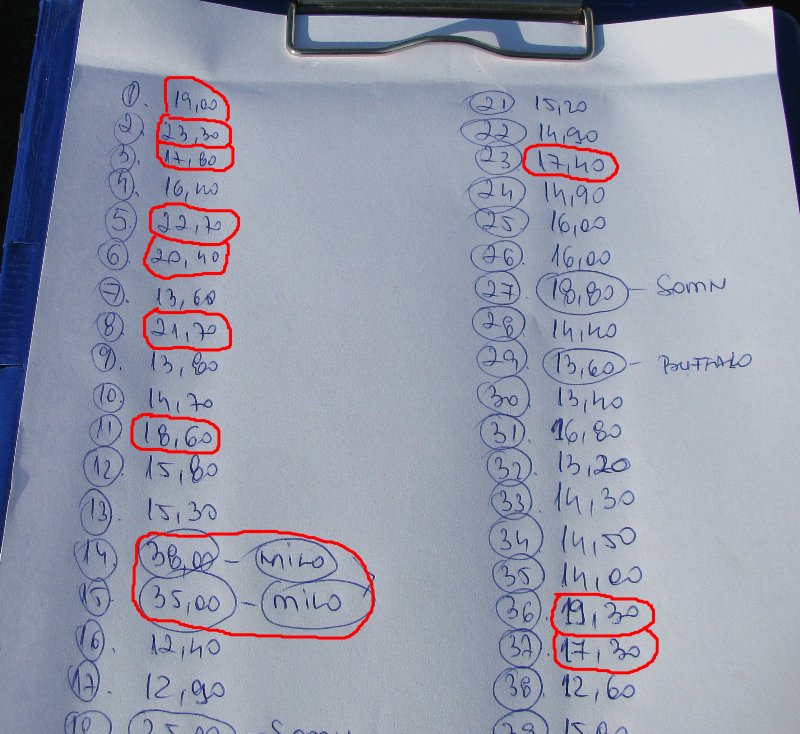 1. 19,00
2. 23,30
3. 17,80
4. 16,40
5 22,70
6. 20,40
7. 13,60
8. 21,70
9. 13,80
10. 14,70
11 18,60
12. 15,80
13. 15,30
14. 38,00 - MILO
15. 35,00 - MILO
16. 12,40
17. 12,90
18. 25,00 - SOMN
21 15,20
22 14,90
23 17,40
24 14,90
25 16,00
26 16,00
27. 18,80 - SOMN
28 14,40
29. 13,60 - BUFFALO
30. 13,40
31. 16,80
32. 13,20
33. 14,30
34 14,50
35 14,00
36. 19,30
37. 17,30
38. 12,60